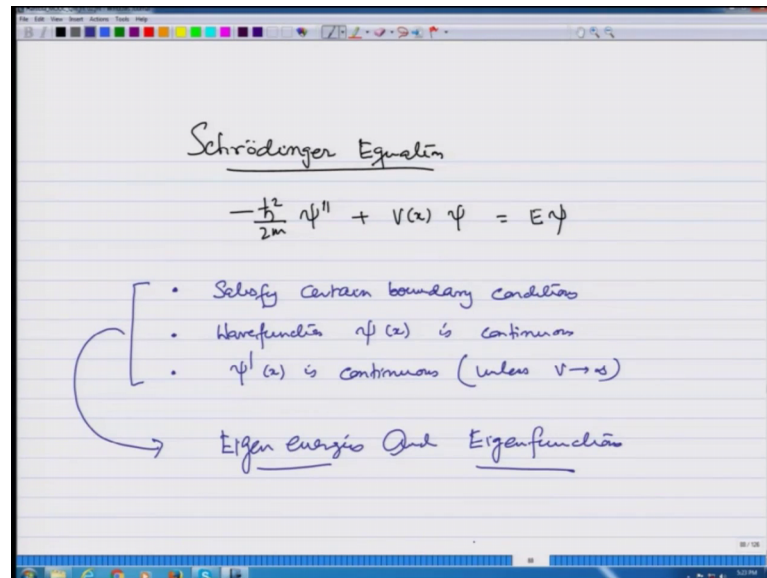 File Edit View Insert Actions Tools Help
Schrödinger Equation
-ħ²/2m ψ'' + V(x) ψ = Eψ
• Satisfy certain boundary conditions
• Wavefunction ψ(x) is continuous
• ψ'(x) is continuous (unless V→∞)
Eigen energies And Eigenfunctions
5:23 PM